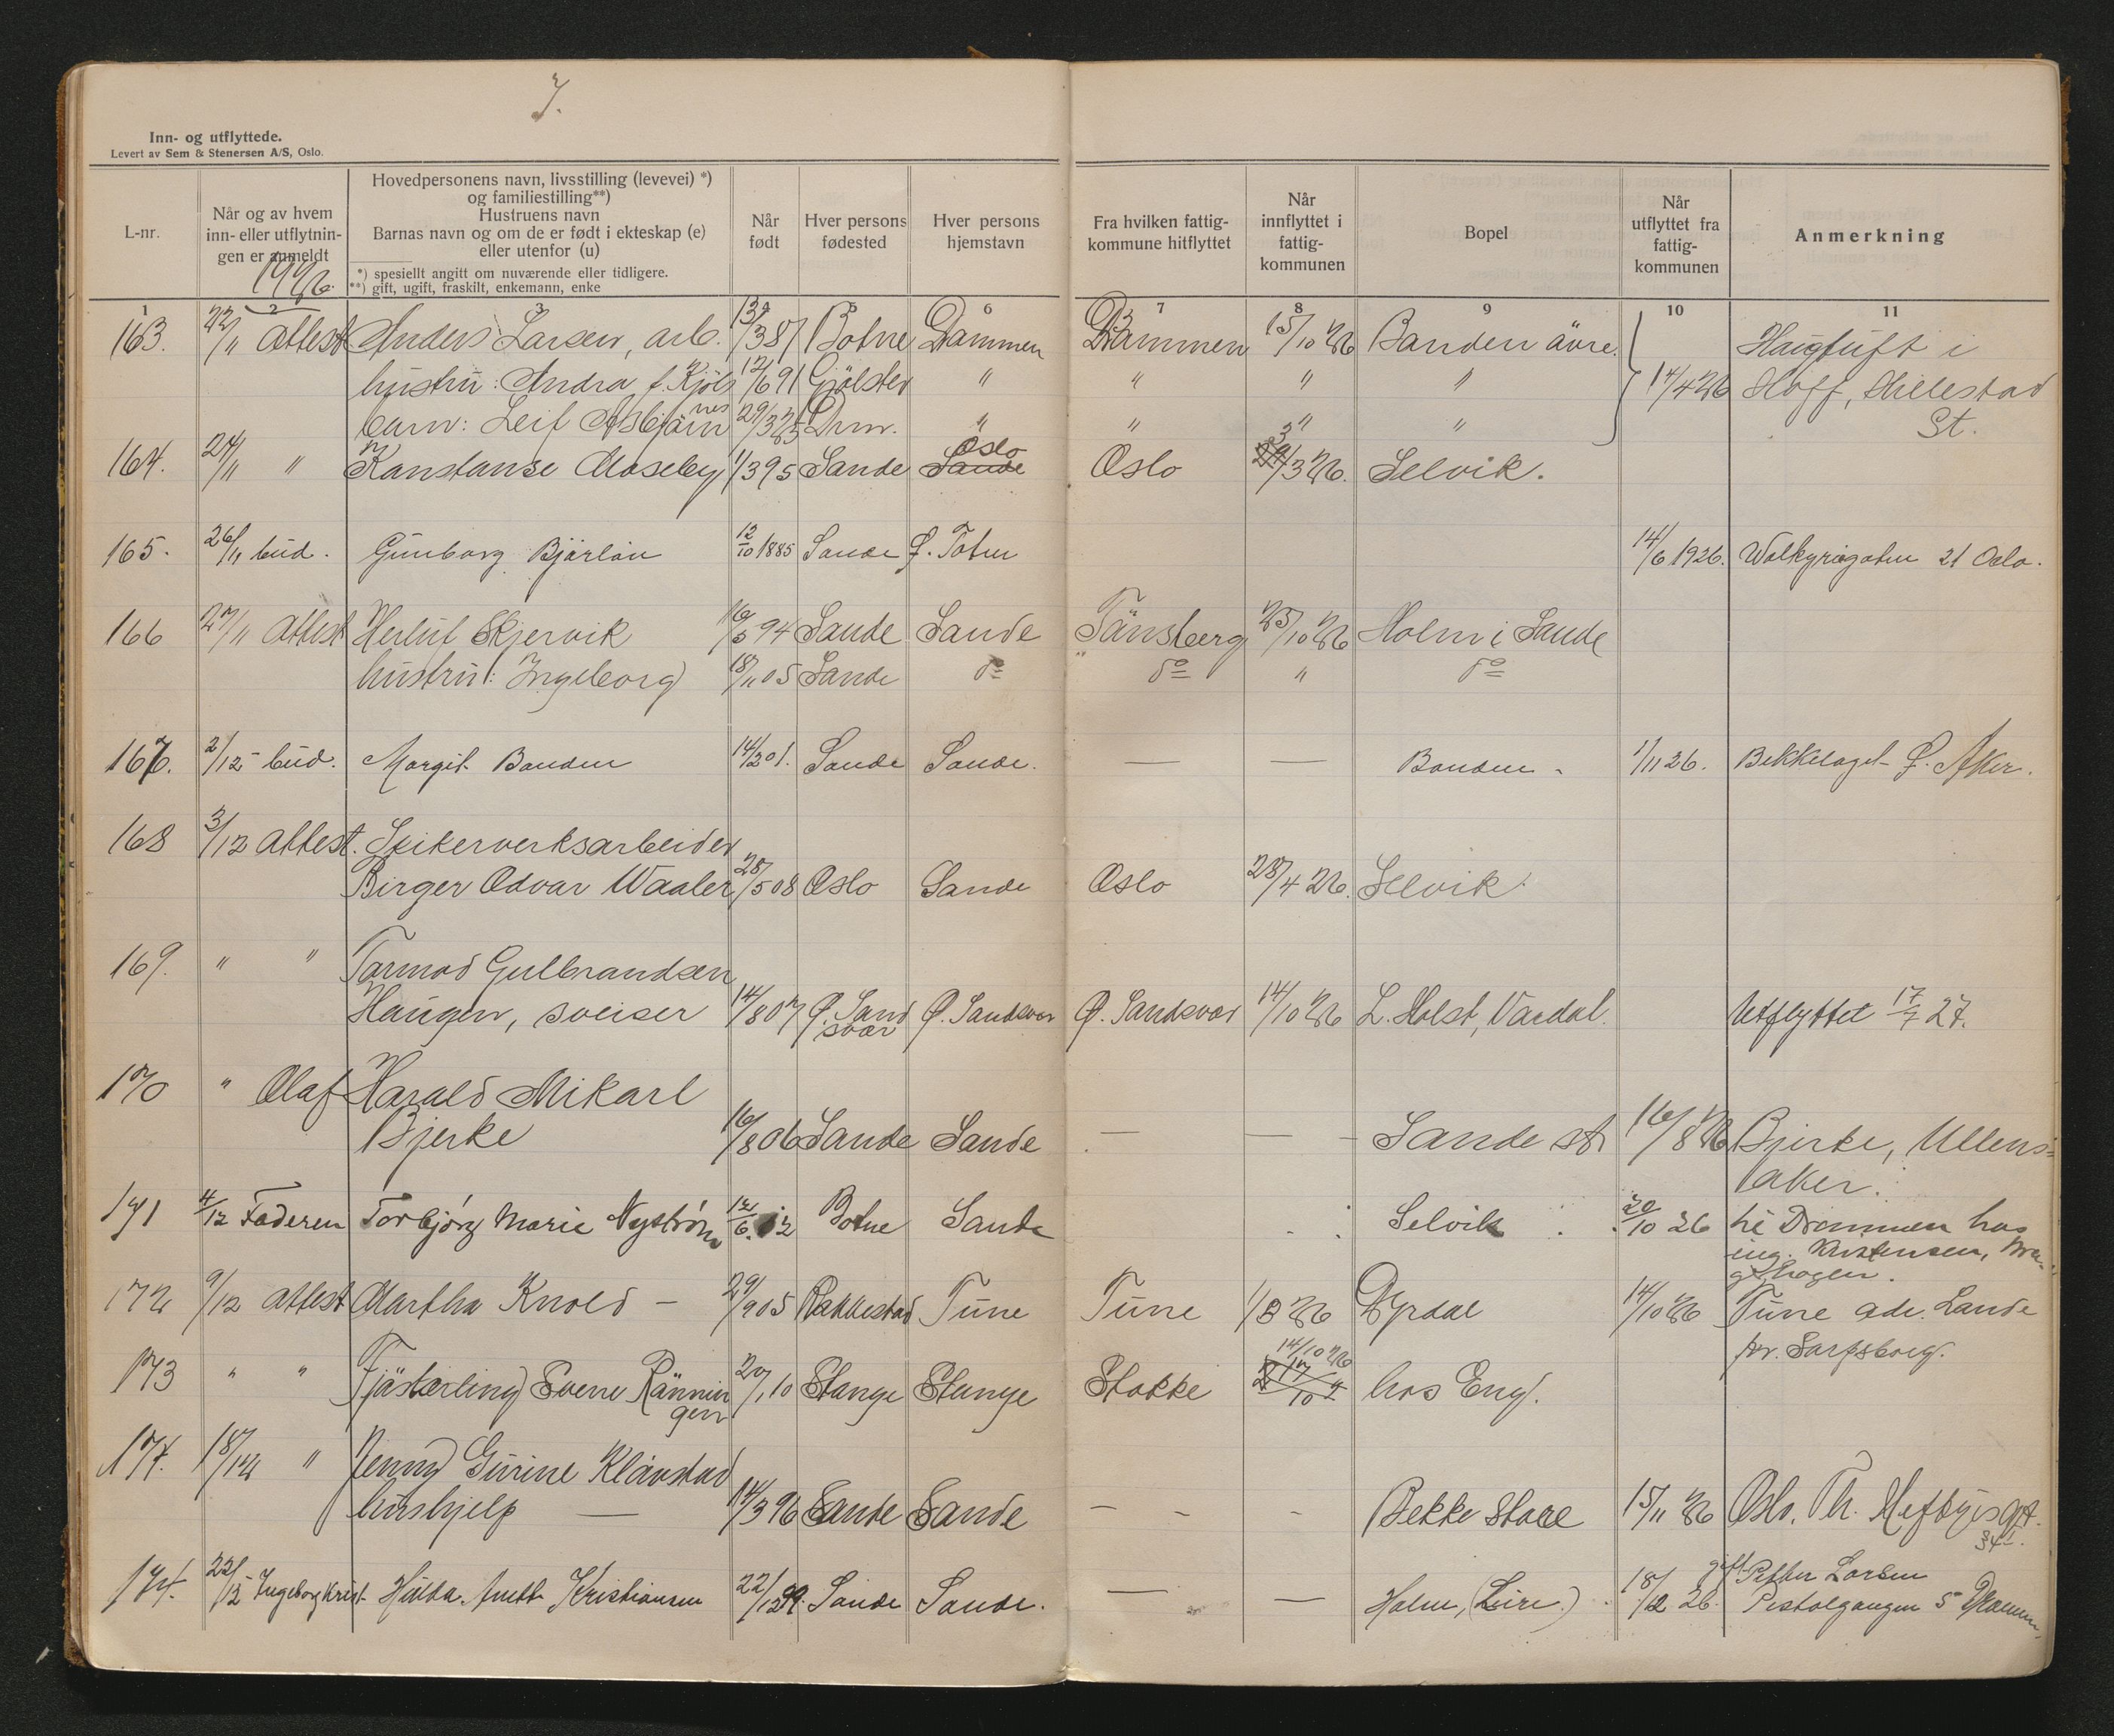 7.
Inn- og utflyttede.
Levert av Sem & Stenersen A/S, Oslo.
L-nr.
Når og av hvem
inn- eller utflytnin-
gen er anmeldt
1926.
Hovedpersonens navn, livsstilling (levevei) *)
og familiestilling**)
Hustruens navn
Barnas navn og om de er født i ekteskap (e)
eller utenfor (u)
*) spesiellt angitt om nuværende eller tidligere.
**) gift, ugift, fraskilt, enkemann, enke
Når
født
Hver persons
fødested
Hver persons
hjemstavn
Fra hvilken fattig-
kommune hitflyttet
Når
innflyttet i
fattig-
kommunen
Bopel
Når
utflyttet fra
fattig-
kommunen
Anmerkning
1 2 3 4 5 6 7 8 9 10 11
163. 22/11 attest Anders Larsen, arb. 13/3 87 Botne Dammen Drammen 15/10 26 Banden övre. Haugtuft i
hustru: Andra f. Kjöls 12/6 91 Gjölster " " " " 14/4 26 Hoff, Hillestad
nes
barn: Leif Asbjörn 29/3 25 Drm. " " " " St.
Oslo 3
164. 24/11 " Konstanse Moseby 1/3 95 Sande Sande Oslo 29/3 26. Selvik.
165. 26/11 bud. Gunborg Bjärløu 12/10 1885 Sande Ø. Toten 14/6 1926. Walkyriegaten 21 Oslo.
166 27/11 attest Herluf Skjervik 16/5 94 Sande Sande Tönsberg 25/10 26 Holm i Sande
hustru: Ingeborg 18/11 05 Sande do do " do
167. 2/12 - bud. Margit Banden 14/2 01. Sande Sande. — — Banden - 1/11 26. Bekkelaget Ø. Aker.
168 3/12 attest. Spikerverksarbeider
Birger Odvar Waaler 28/5 08 Oslo Sande Oslo 28/4 26. Selvik.
169. " " Tormod Gulbrandsen
Haugen, sveiser 14/8 07 Ø. Sand Ø. Sandsvær Ø. Sandsvær 14/10 26 L. Holst, Vardal. Utflyttet 17/7 27.
svær
170 " Olaf Harald Mikarl
Bjerke 16/8 06 Sande Sande — — - Sande st. 16/8 26 Bjerke, Ullens=
aker.
171 4/12 Faderen Torbjørg Marie Nystrøm 12/6. 12 Botne Sande Selvik 20/10 26 til Drammen hos
ing. Kristensen, Bra-
gehagen.
172 9/12 attest Martha Knold - 29/9 05 Rakkestad Tune Tune 1/3 26 Dyrdal 14/10 26 Tune adr. Lande
pr. Sarpsborg.
14/10 26
173 " " Fjästerling Sverre Rännin 20/1 10 Stange Stange Stokke 17/10 hos Eng.
gen
174. 18/12 " Jenny Gurine Klävstad
hushjelp — 14/3 96 Sande Sande - - - Bekke Store 15/11 26 Oslo, Th. Heftyes gt.
34
gift Petter Larsen
174. 22/12 - Ingeborg Krist. Hulda Anette Kristiansen 22/12 99. Sande Sande. — — Holm, (Leire.) 18/12 26. Pistolgangen 5 Dramm.